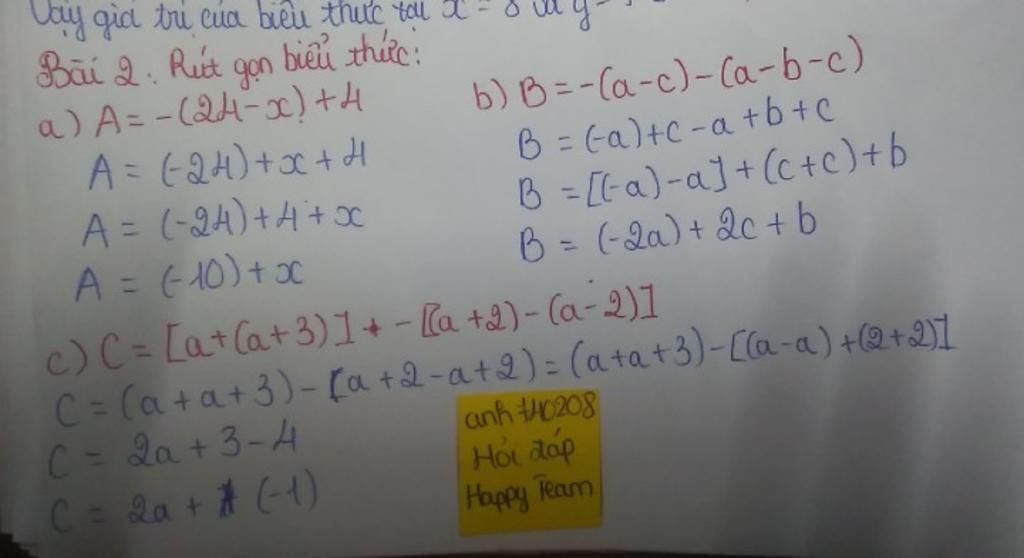 Vậy giá trị của biểu thức tại x = 8 và y =
Bài 2. Rút gọn biểu thức:
a) A = -(24-x)+4
A = (-24)+x+4
A = (-24)+4+x
A = (-10)+x
b) B = -(a-c)-(a-b-c)
B = (-a)+c-a+b+c
B = [(-a)-a]+(c+c)+b
B = (-2a)+2c+b
c) C = [a+(a+3)] - [(a+2)-(a-2)]
C = (a+a+3)-[a+2-a+2) = (a+a+3)-[(a-a)+(2+2)]
C = 2a+3-4
C = 2a+ (-1)
anh t40208
Hỏi đáp
Happy Team